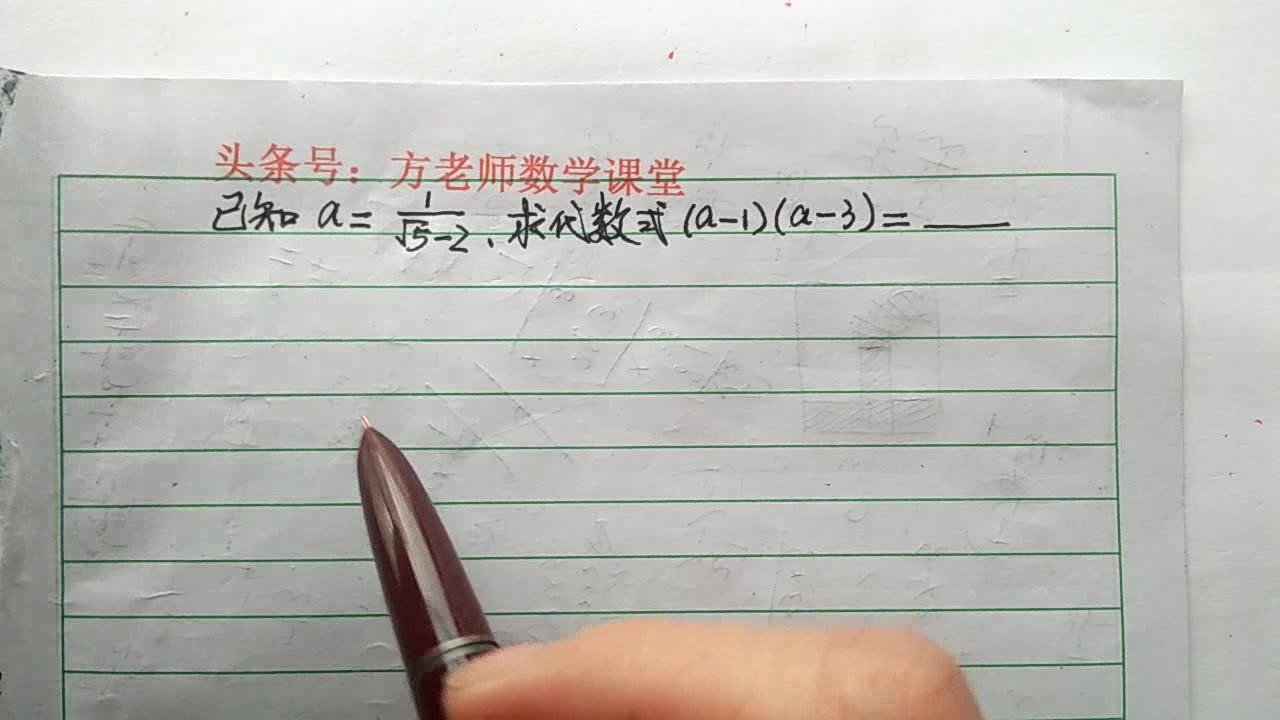 头条号：方老师数学课堂
已知 a=1/(√5-2)、求代数式(a-1)(a-3)=____